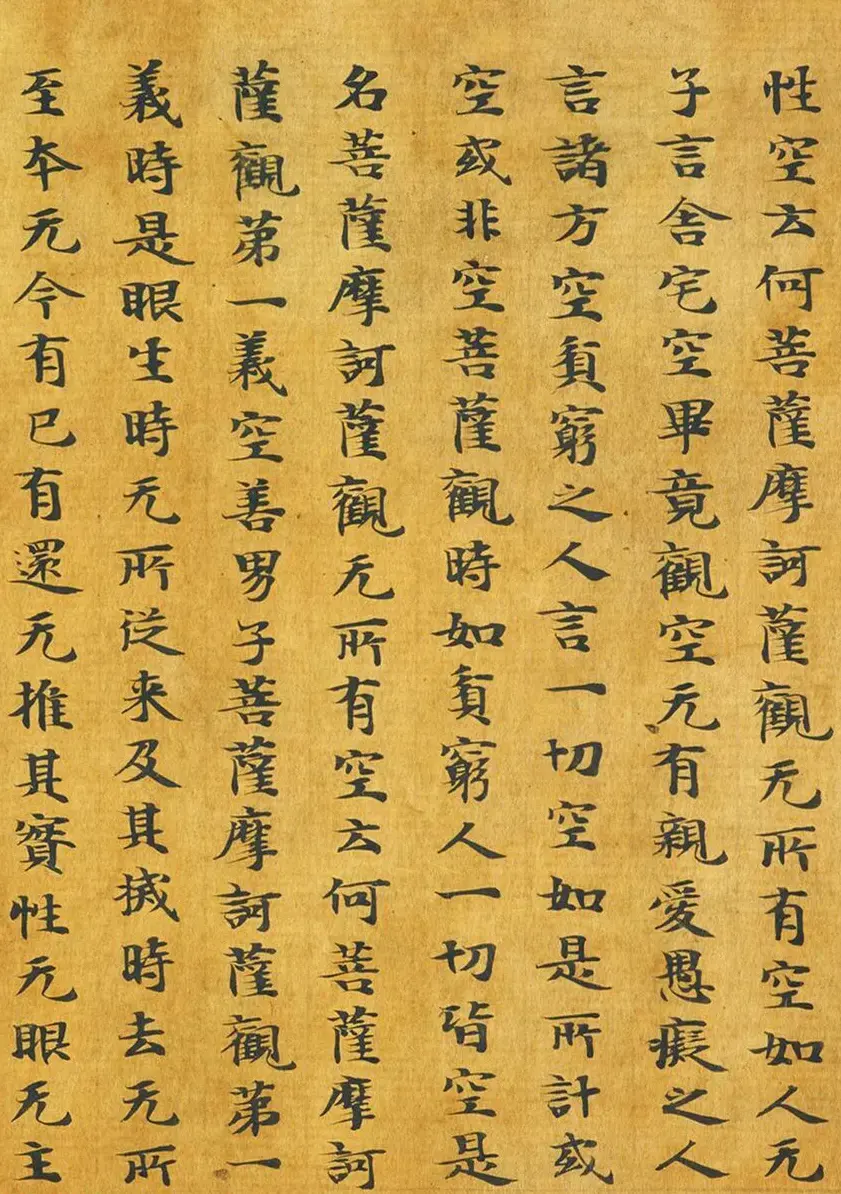 性空云何菩薩摩訶薩觀无所有空如人无
子言舍宅空畢竟觀空无有親愛愚癡之人
言諸方空貧窮之人言一切空如是所計或
空或非空菩薩觀時如貧窮人一切皆空是
名菩薩摩訶薩觀无所有空云何菩薩摩訶
薩觀第一義空善男子菩薩摩訶薩觀第一
義時是眼生時无所從来及其滅時去无所
至本无今有已有還无推其實性无眼无主